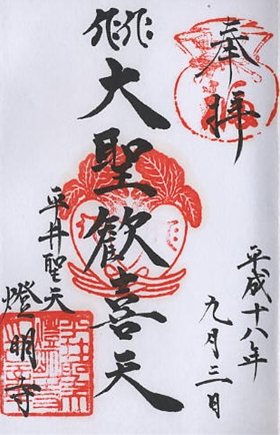 奉拝
平成十八年
九月三日
大聖歓喜天
平井聖天
燈明寺